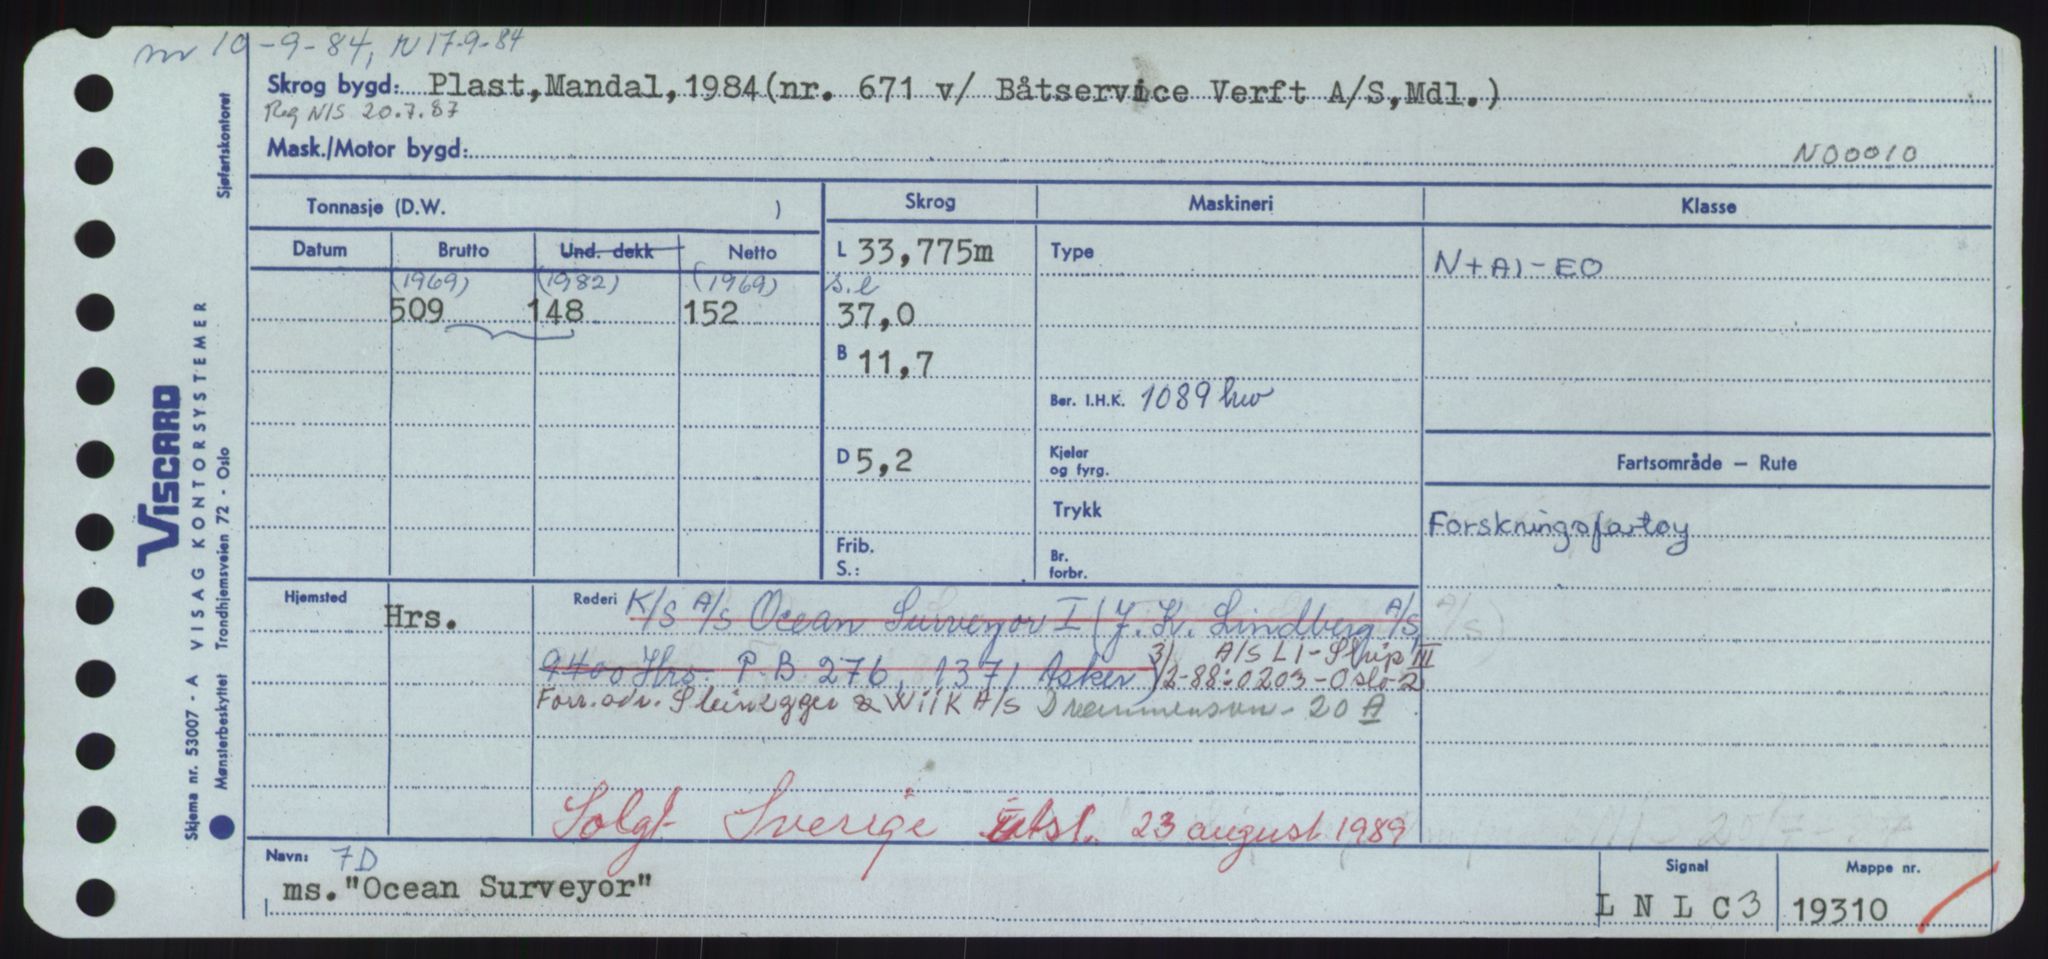 nr 10-9-84, N 17-9-84
Skrog bygd: Plast, Mandal, 1984 (nr. 671 v/ Båtservice Verft A/S, Mdl.)
Reg NIS 20.7.87
Mask./Motor bygd:
N00010
Tonnasje (D.W. )
Skrog
Maskineri
Klasse
Datum Brutto Und. dekk Netto
L 33,775m
Type
N+A1-EO
(1969) (1982) (1969)
s.l
509 148 152
37,0
B 11,7
Ber. I.H.K. 1089 hw
D 5,2
Kjeler
og fyrg.
Fartsområde – Rute
Trykk
Forskningsfartøy
Frib.
S.:
Br.
forbr.
Hjemsted
Hrs.
Rederi K/S A/S Ocean Surveyor I (J. K. Lindberg A/S,
9400 Hrs. P.B. 276, 1371 Asker)
3) A/S LI-Ship III
12-88: 0203-Oslo-2
Forr. adr. Steinegger & Wilk A/S Drammensvn. 20 A
Solgt Sverige utsl. 23 august 1989
Navn: 7D
ms. "Ocean Surveyor"
Signal
L N L C 3
Mappe nr.
19310
Sjøfartskontoret
VISCARD
VISAG KONTORSYSTEMER
Skjema nr. 53007 - A
Mønsterbeskyttet Trondhjemsveien 72 - Oslo